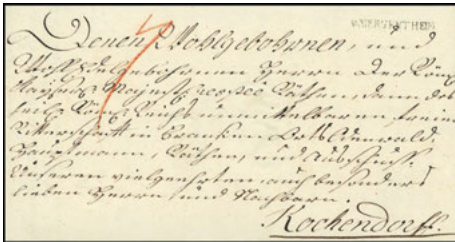 V.MERGENTHEIM
Denen Wohlgebohrnen, und
Wohl Edelgebohrnen Herrn Der Röm:
Kayserl: Majestt: Räthen, dann des
heil: Röm: Reichs unmittelbaren freien
Ritterschafft in Francken Orts Ottenwald.
Hauptmann, Räthen, und Ausschuss.
Unseren vielgeehrten auch besonders
lieben Herrn und Nachbarn.
Kochendorff.